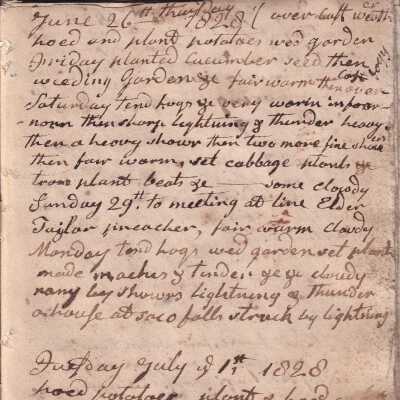 June 26th thursday 1828 over cast weather
hoed and plant potatoes wed garden
Friday planted cucumber seed then
wieding Garden &c fair warm then over cast
Saturday tend hogs &c very warm in foor-
noon then sharp lightning & thunder heavy
then a heavy showr then two more fine showr
then fair warm, set cabbage plants &c
trans plant beats &c some clowdy
Sunday 29th. to meeting at line Elder
Taylor preacher, fair warm clowdy
Monday tend hogs wed garden set plants
made maches & tinder &c &c clowdy
rany lay showrs lightning & thunder
a house at saco falls struck by lightning
Tuesday July ye 1st 1828
hoed potatoes plant & hoed